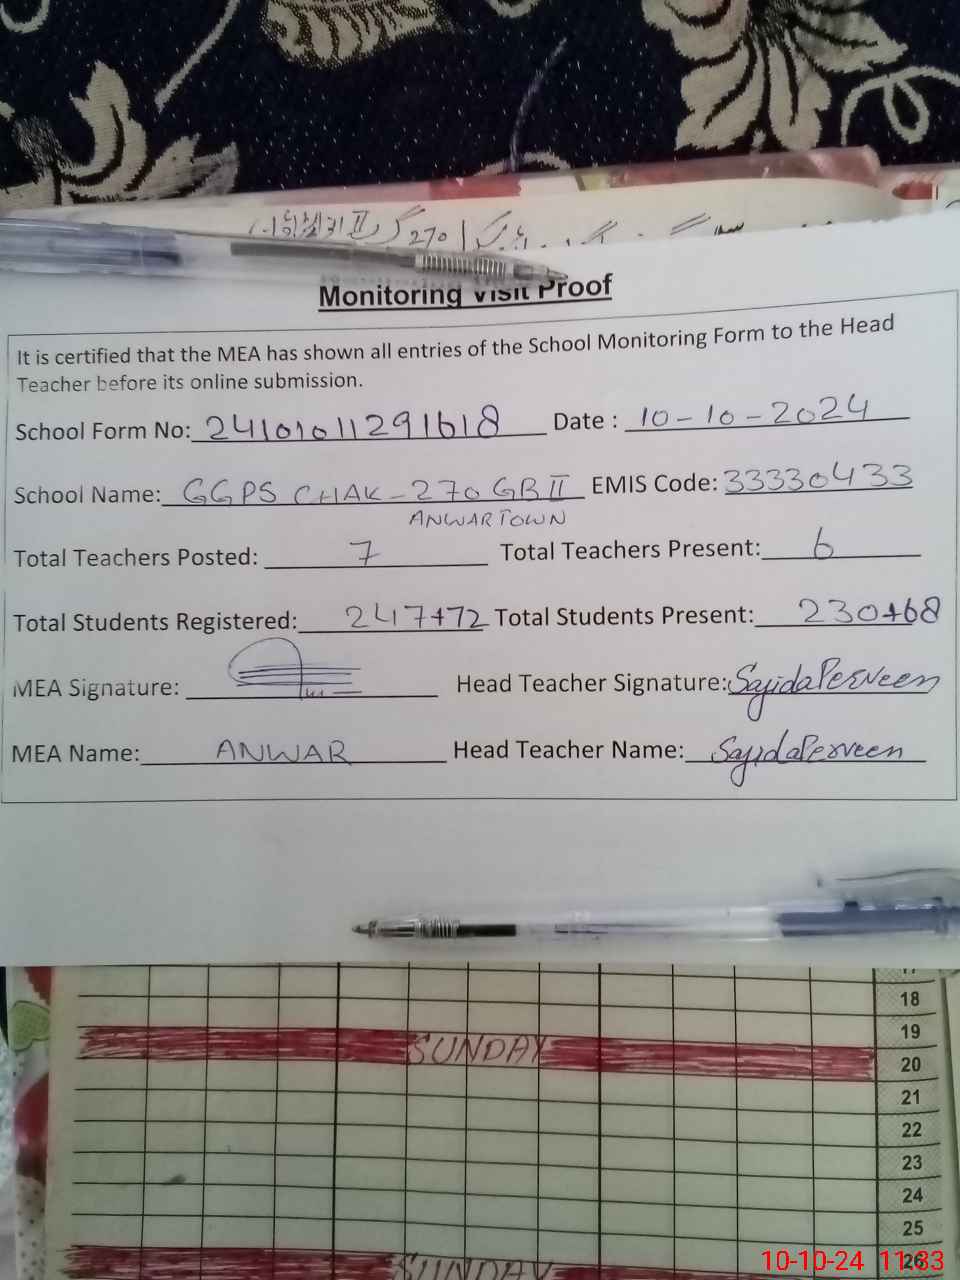 270
Monitoring Visit Proof
It is certified that the MEA has shown all entries of the School Monitoring Form to the Head
Teacher before its online submission.
School Form No: 24101011291618 Date : 10-10-2024
School Name: GGPS CHAK-270 GB II EMIS Code: 33330433
ANWAR TOWN
Total Teachers Posted: 7 Total Teachers Present: 6
Total Students Registered: 247+72 Total Students Present: 230+68
MEA Signature: Head Teacher Signature: Sajida Perveen
MEA Name: ANWAR Head Teacher Name: Sajida Perveen
17
18
19
SUNDAY 20
21
22
23
24
25
SUNDAY 26
10-10-24 11:33